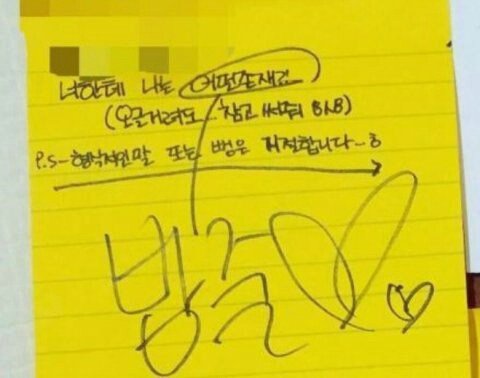 너한테 나는 어떤존재?
(오글거려도.. 참고 써줘 BAB)
P.S-형식적인말 또는 뻥은 거절합니다..ㅎ
방굴